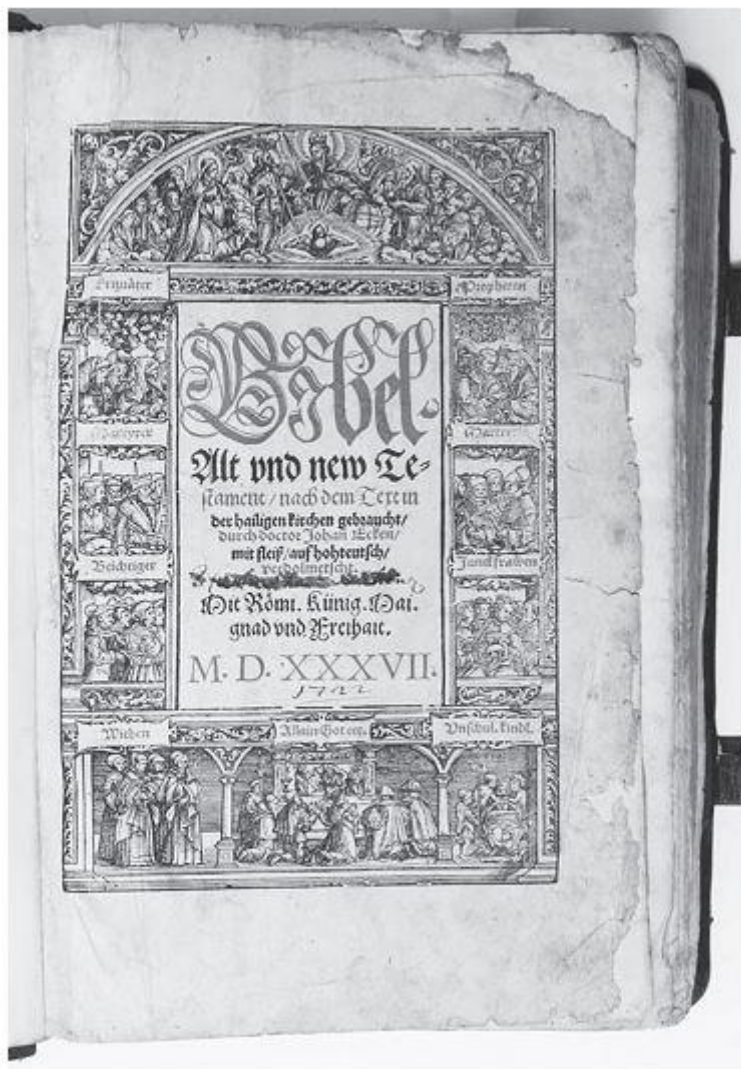 Ertzväter
Propheten
Bibel.
Alt vnd new Te-
stament / nach dem Text in
der hailigen kirchen gebraucht /
durch doctor Johan Ecken /
mit fleiß / auf hohteutsch /
verdolmetscht.
Mit Röm. Künig. Mai.
gnad vnd Freihait.
M. D. XXXVII.
Beichtiger
Junckfrawen
Witben
Allain Got eer.
Vnschul. kindl.